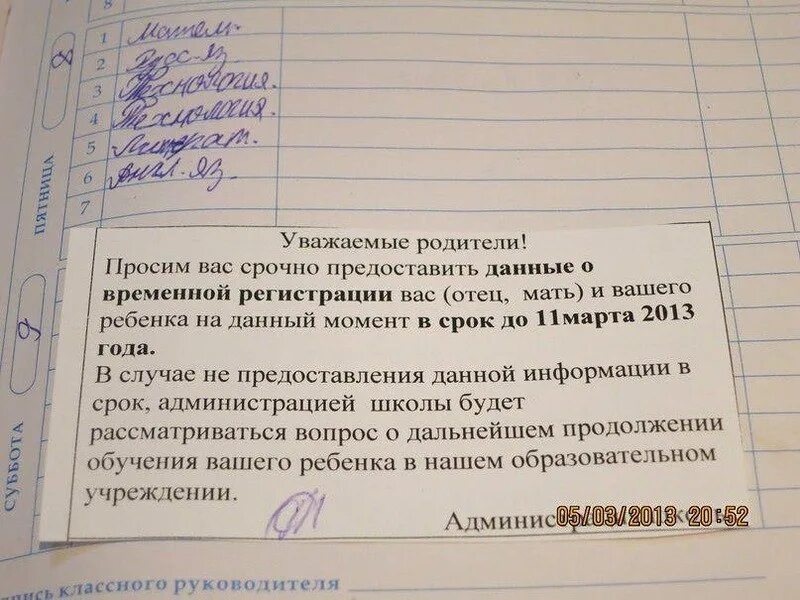 8
ПЯТНИЦА
8
1 Матем.
2 Русс. яз
3 Технология.
4 Технология.
5 Литерат.
6 Англ. яз.
7
СУББОТА
9
Уважаемые родители!
Просим вас срочно предоставить данные о
временной регистрации вас (отец, мать) и вашего
ребенка на данный момент в срок до 11марта 2013
года.
В случае не предоставления данной информации в
срок, администрацией школы будет
рассматриваться вопрос о дальнейшем продолжении
обучения вашего ребенка в нашем образовательном
учреждении.
05/03/2013 20:52
классного руководителя